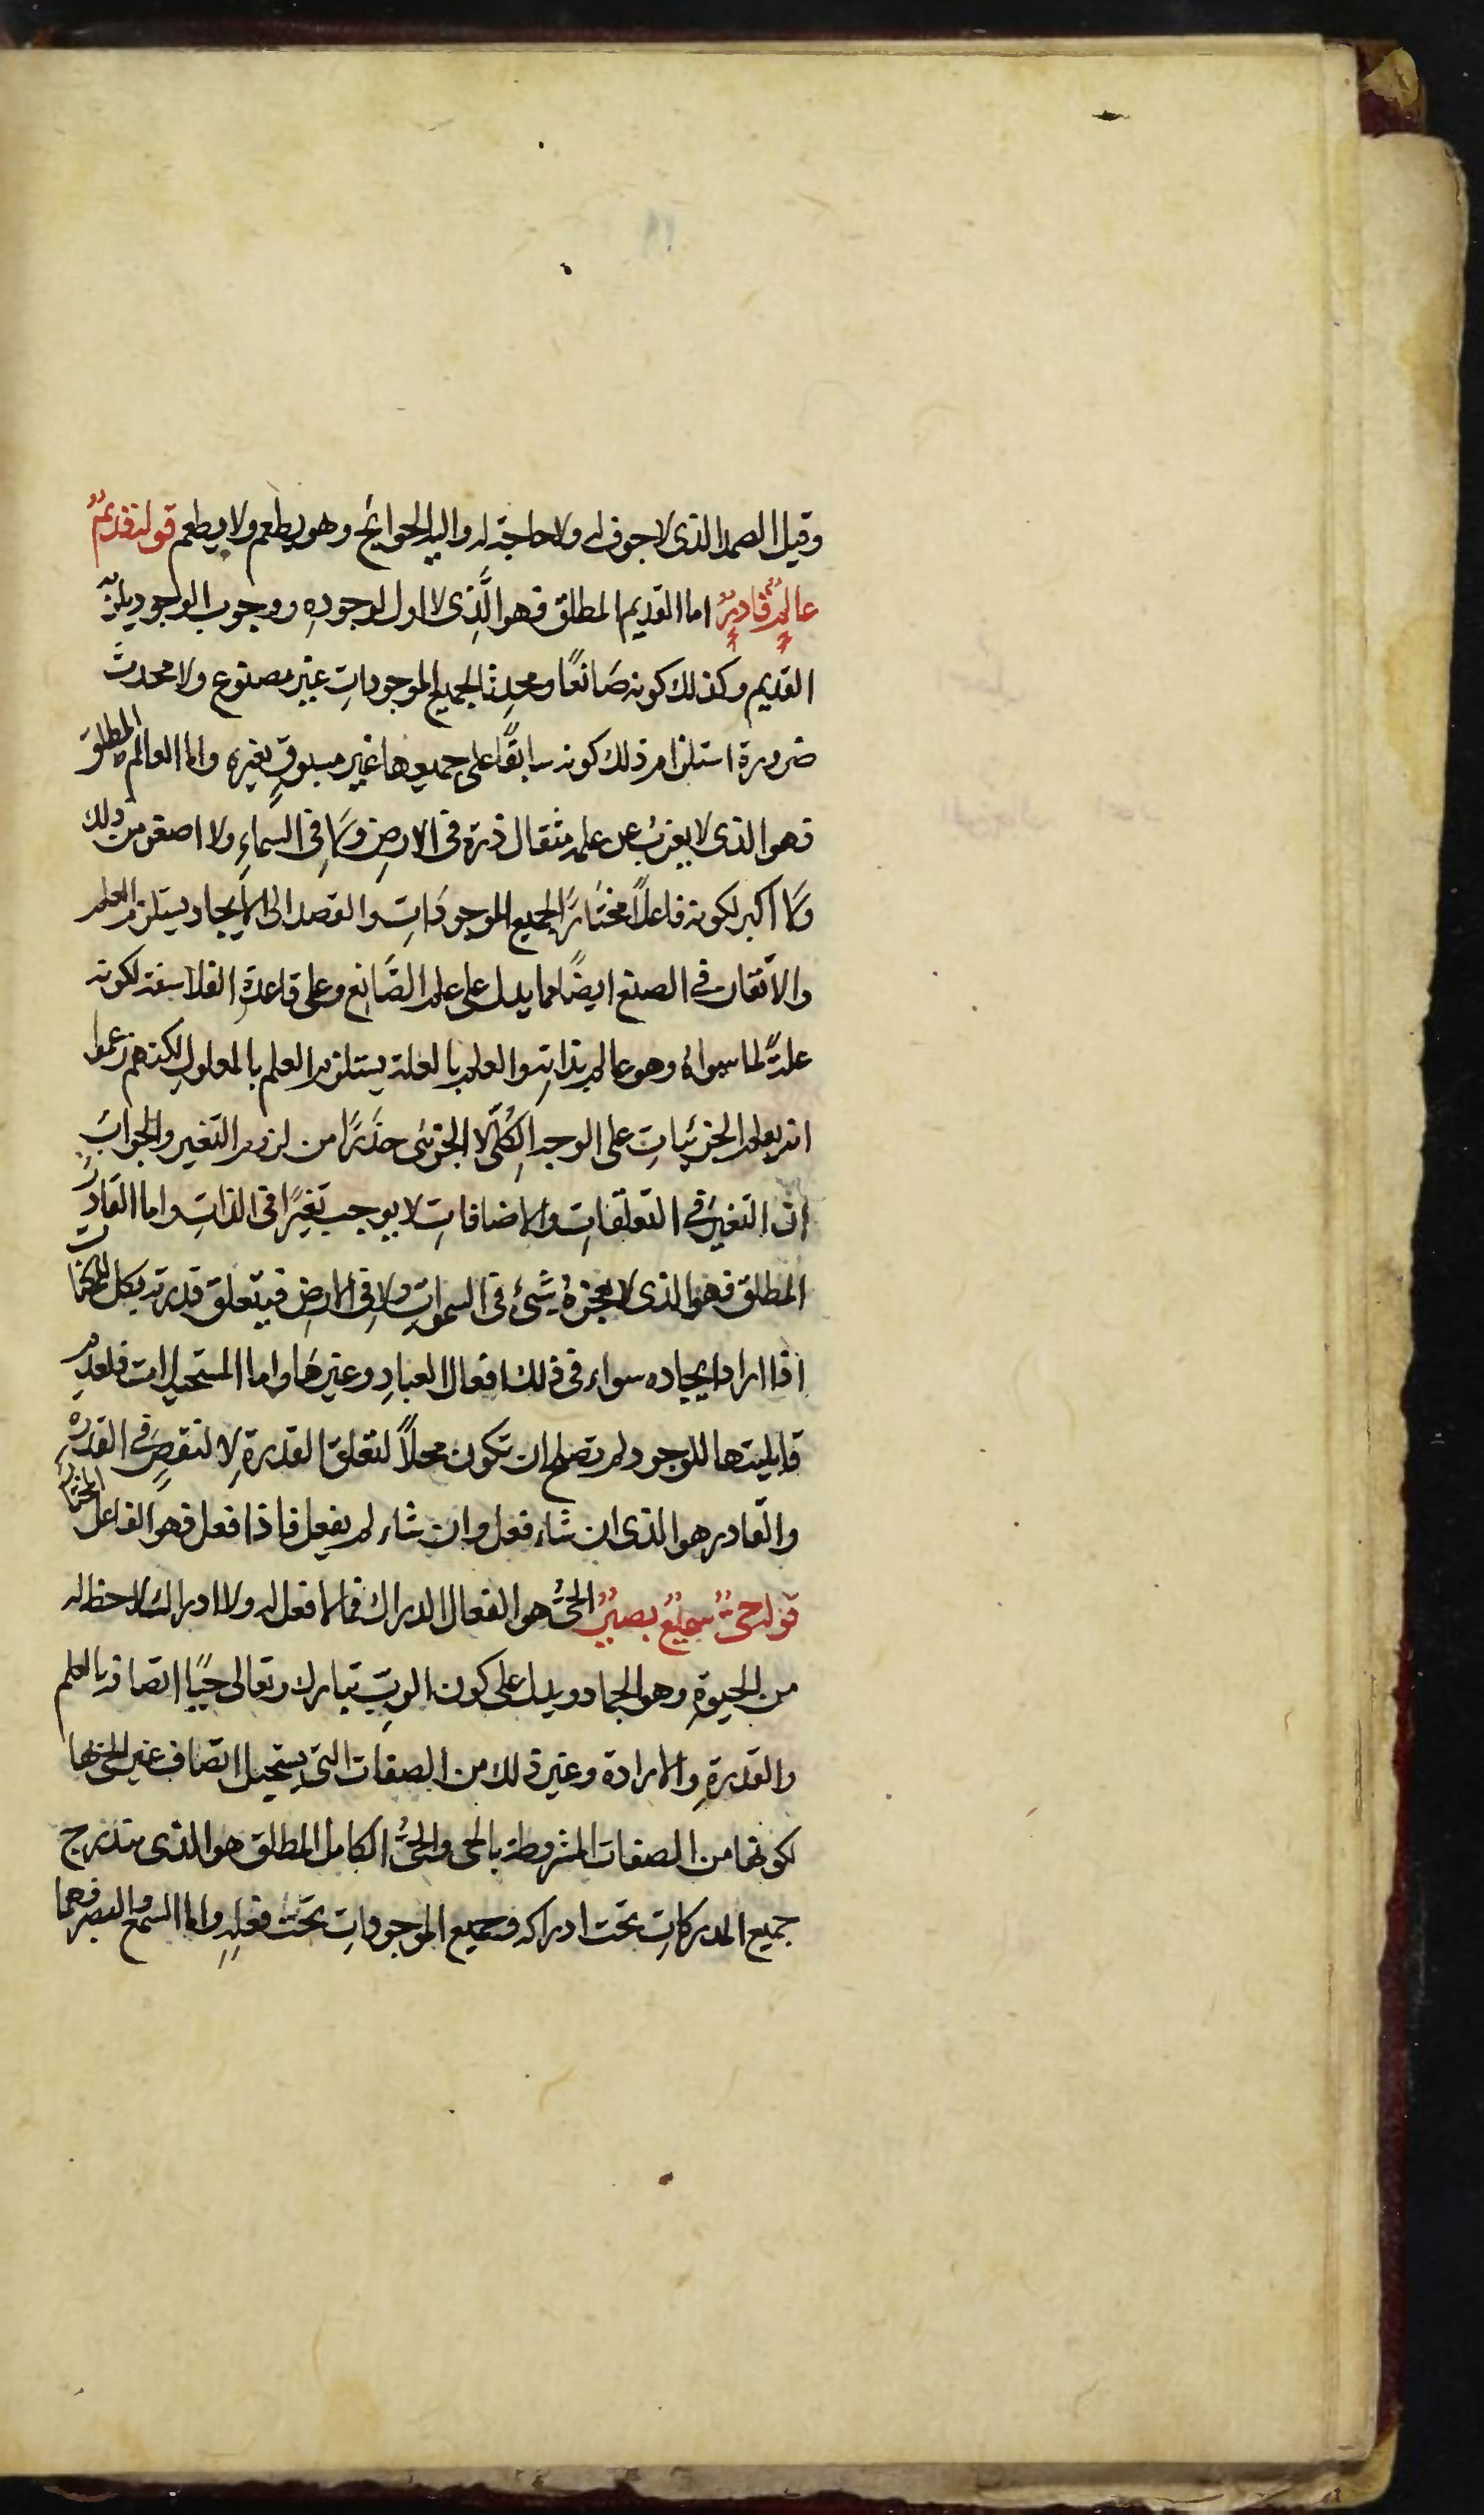 وقيل الصمد الذى لا جوف له ولا حاجة له واليه الحوائج وهو يطعم ولا يطعم قوله قديمٌ
عالمٌ قادرٌ اما القديم المطلق فهو الَّذِى لا اول لوجودهِ ووجوب الوجود يلزمه
القديم وكذلك كونه صَانعًا ومحدِثا لجميع الموجوداتِ غير مصنوع ولا محدثَ
ضرورة استلزام ذلك كونه سابقًا على جميعها غيرِ مسبوقٍ بغيره واما العالم المطلق
فهو الذى لا يعزبُ عن علمه مثقال ذرة فى الارضِ ولَا فِى السماءِ ولا اصغر من ذلك
ولَا اكبر لكونه فاعلاً مختَارًا لجميع الموجودَاتِ والقصد الى الايجاد يستلزم العلم
والاتّقان فى الصنع ايضًا مما يدل على علم الصَّانِع وعلى قاعدةِ الفلاسفة لكونه
علةً لما سواهُ وهو عالم بذاتِه والعلم بالعلة يستلزم العلم بالمعلولِ لكنهم زعموا
انه يعلم الجزئياتِ على الوجه الكِلُّى لا الجزئى حذَرًا من لزوم التغير والجوابَ
انَّ التغيرَ فى التعلّقاتِ والاضافاتِ لا يوجب تغيرًا فى الذاتِ واما القَادر
المطلق فهو الذى لا يعجزهُ شَىءٌ فى السمواتِ ولا فِى الارضِ فيتعلق قدرته بكل الممكنات
اذا اراد ايجاده سواء فى ذلك افعال العبادِ وغيرهَا واما المستحيلات فلعدمِ
قابليتها للوجود لم تصلح ان تكون محلاً لتعلق القدرةِ لا لنقصٍ فى القدرةِ
والقادر هو الذى ان شاء فعل وان شاء لم يفعل فاذا فعل فهو الفاعل المختار
قوله حىٌّ سميعٌ بصيرٌ الحىُّ هو الفعال الدراك فما لا فعل له ولا ادراك لا حظ له
من الحيوةِ وهو الجماد ويدل على كون الربِّ تبارك وتعالى حيًّا اتصافه بالعلم
والقدرةِ والارادة وغير ذلك من الصفات التى يستحيل اتصاف غير الحى بها
لكونها من الصفات المشروطة بالحى والحىُّ الكامل المطلق هو الذى يتدرج
جميع المدركاتِ تحت ادراكه وجميع الموجوداتِ تحتَ فعلِهِ واما السمع والبصر فهما